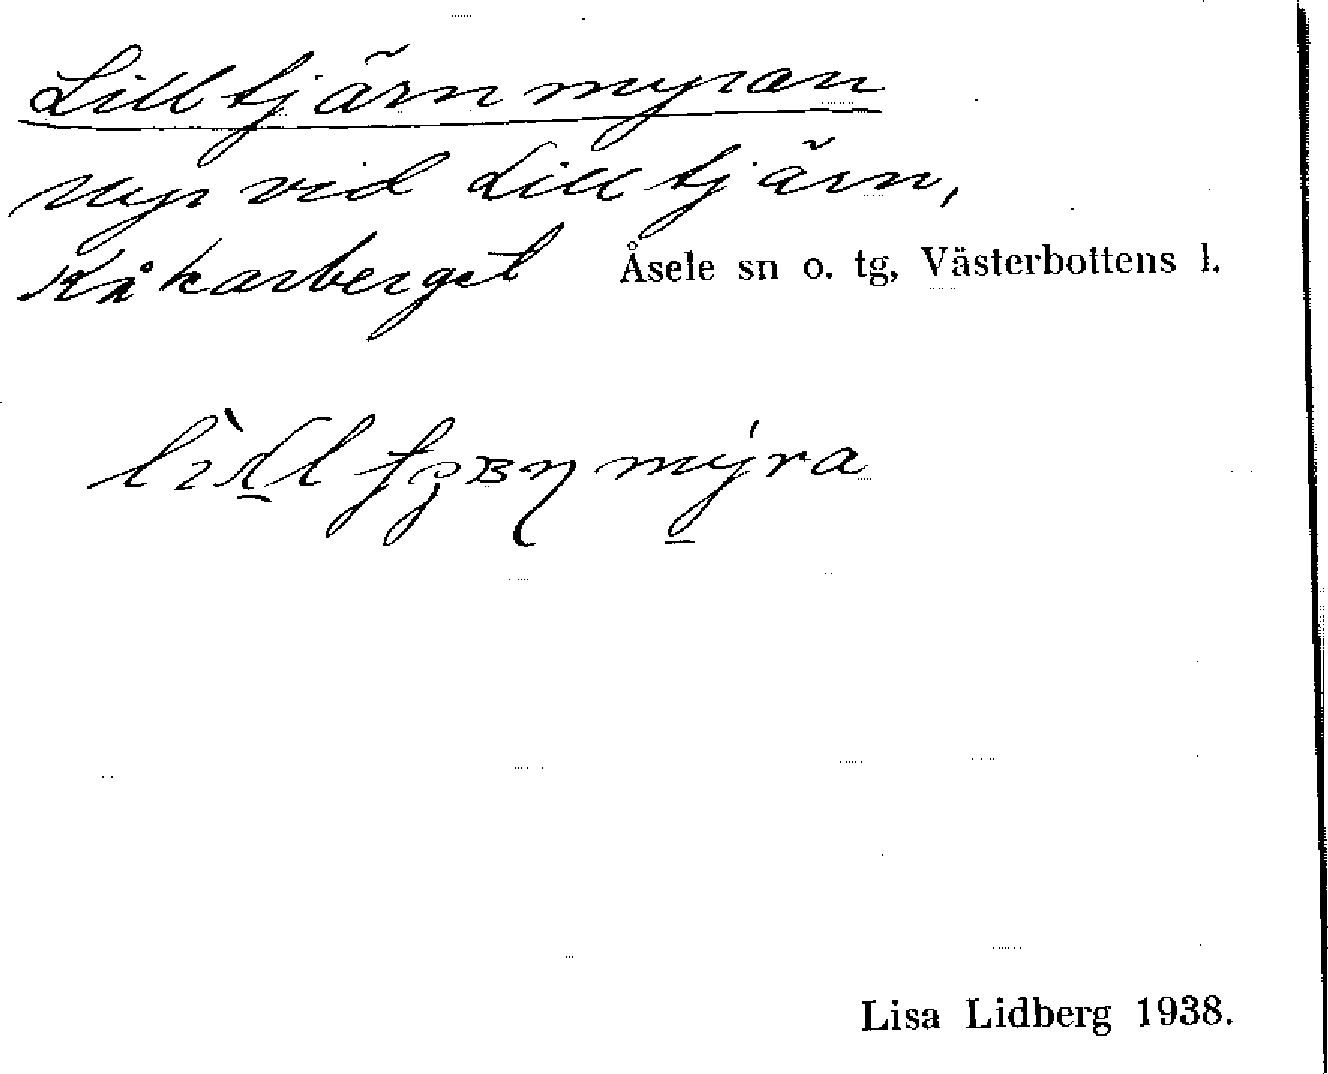 Lilltjärnmyran
Myr vid Lilltjärn,
Kåkarberget Åsele sn o. tg, Västerbottens l.
Lisa Lidberg 1938.